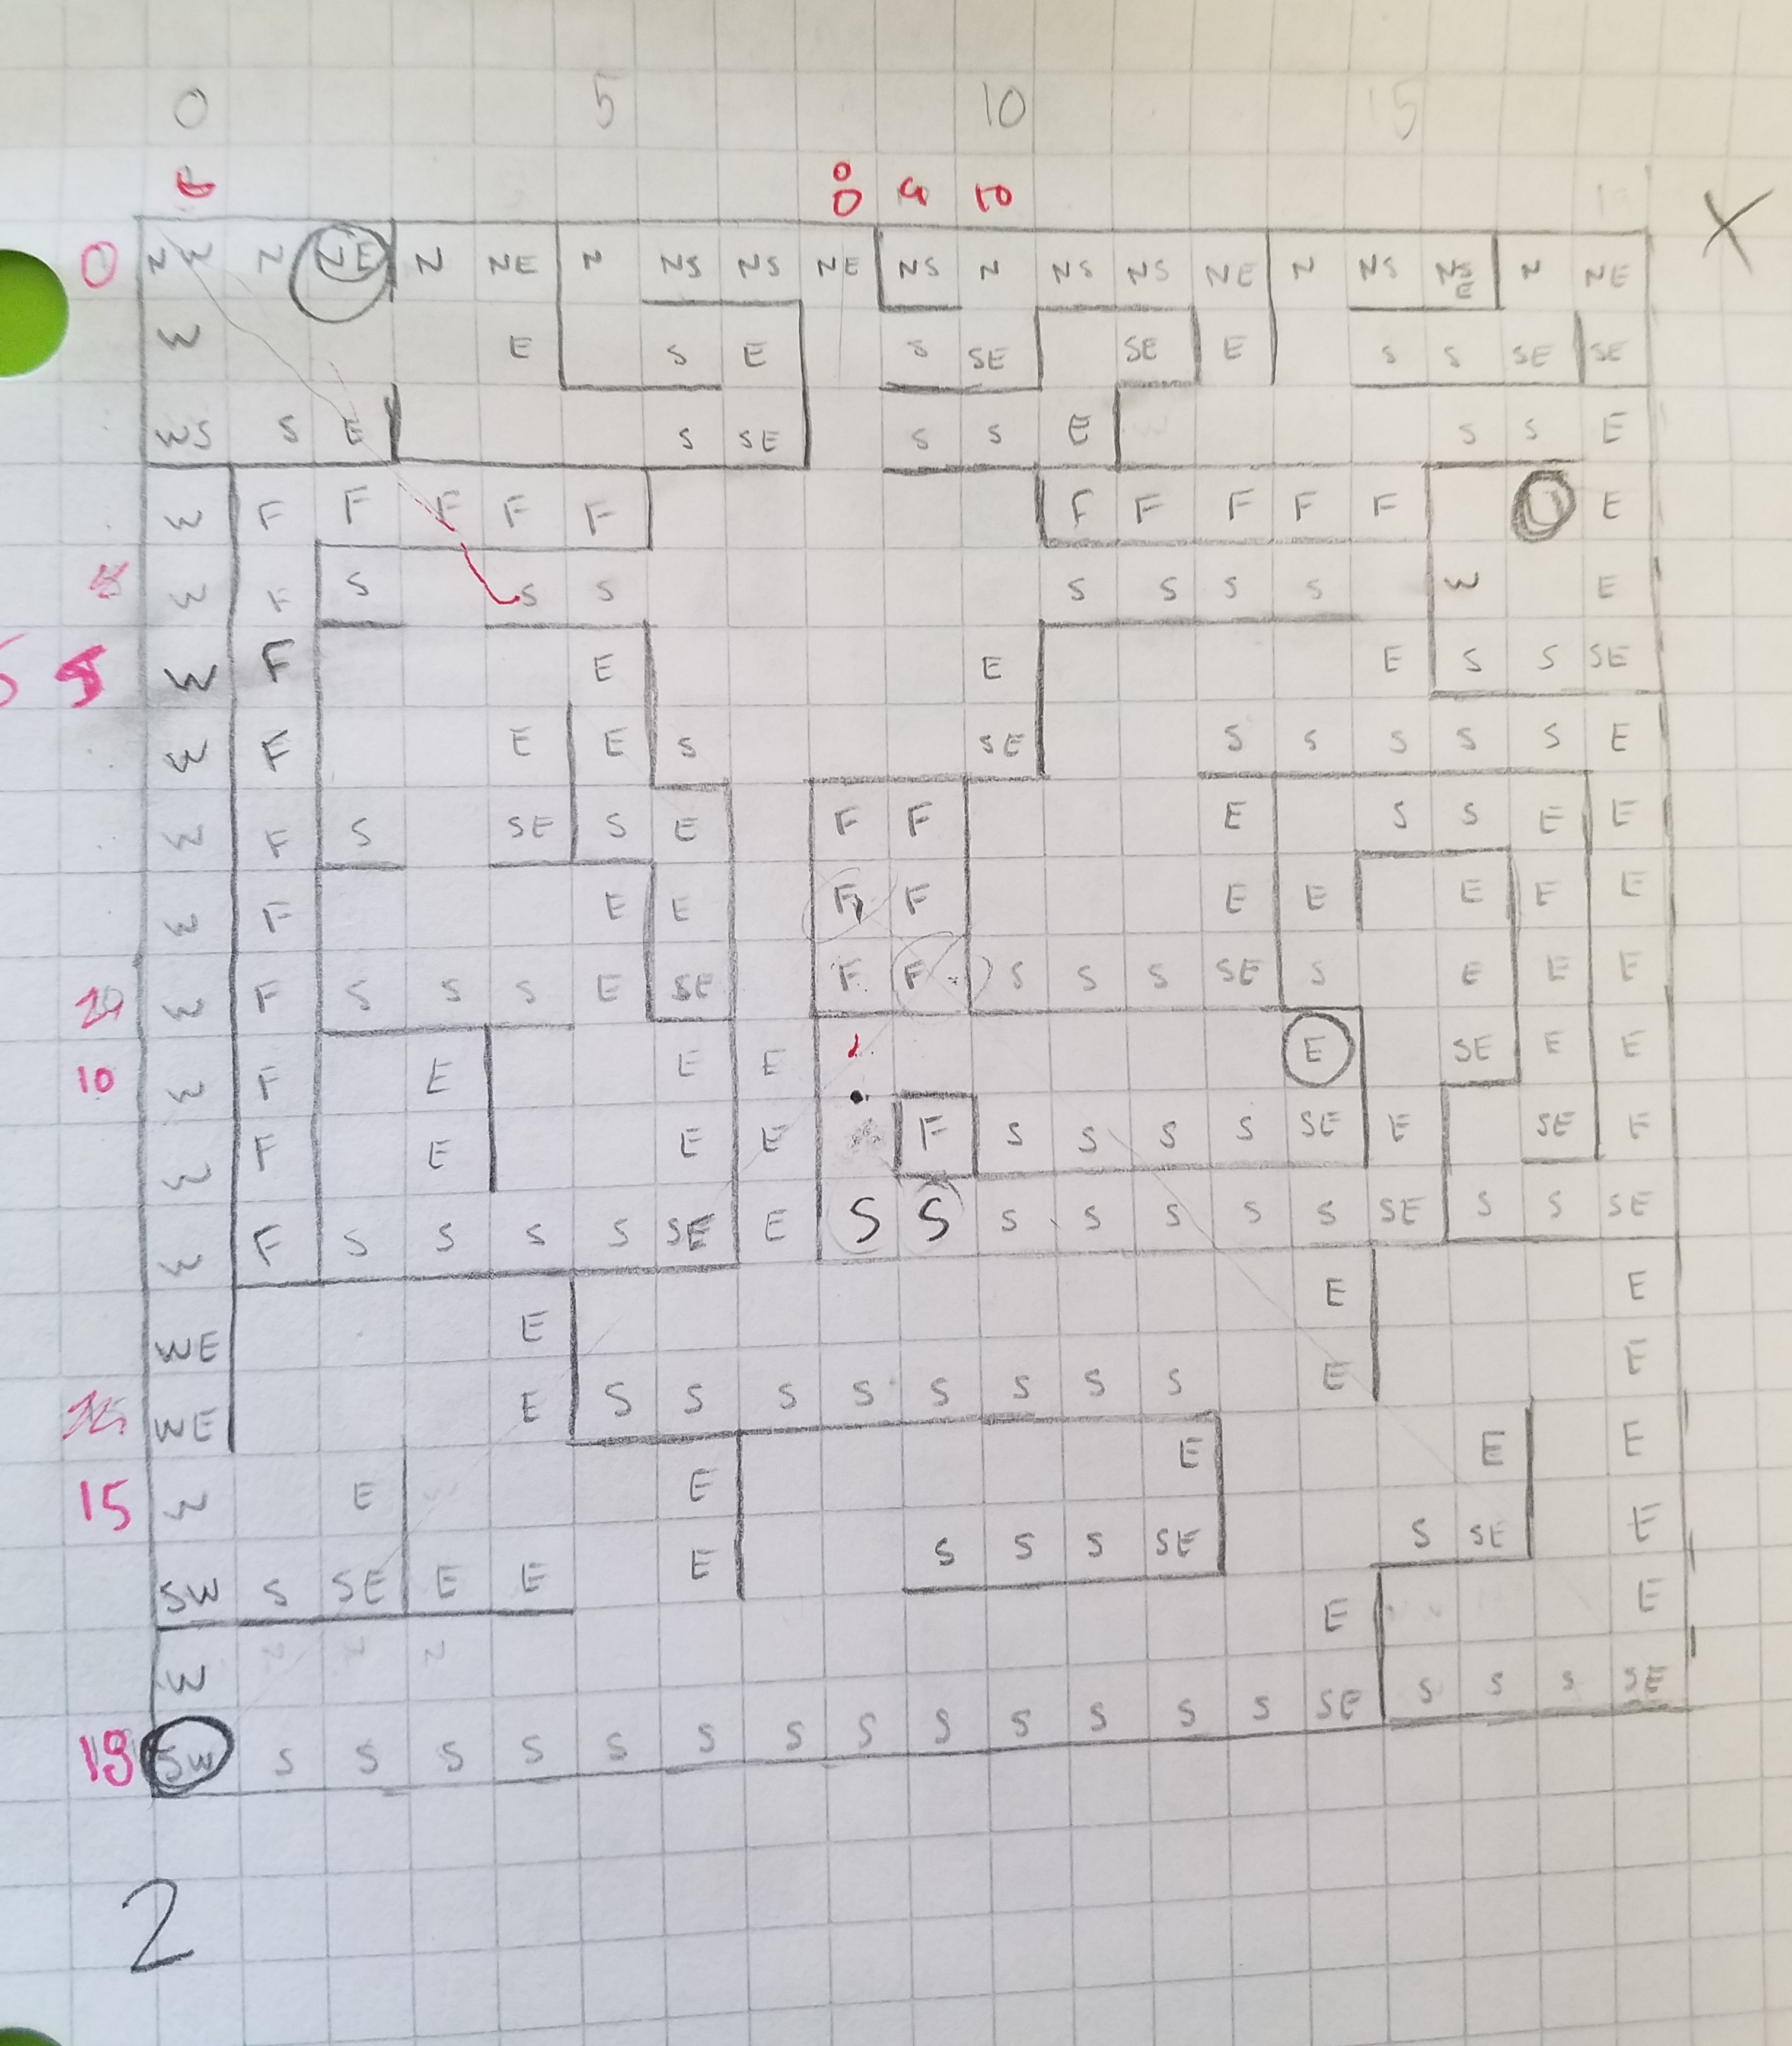 0 5 10 15
0 8 9 10
X
0 NW N NE N NE N NS NS NE NS N NS NS NE N NS NSE N NE
W E S E S SE SE E S S SE SE
WS S E S SE S S E S S E
W F F F F F F F F F F E
W F S S S S S S S W E
5 W F E E E S S SE
W F E E S SE S S S S S E
W F S SE S E F F E S S E E
W F E E F F E E E E E
W F S S S E SE F F S S S SE S E E E
10 W F E E E E SE E E
W F E E E F S S S S SE E SE E
W F S S S S SE E S S S S S S S SE S S SE
WE E E E
WE E S S S S S S S S E E
15 W E E E E E
SW S SE E E E S S S SE S SE E
W N N N E E
SW S S S S S S S S S S S S S SE S S S SE
2